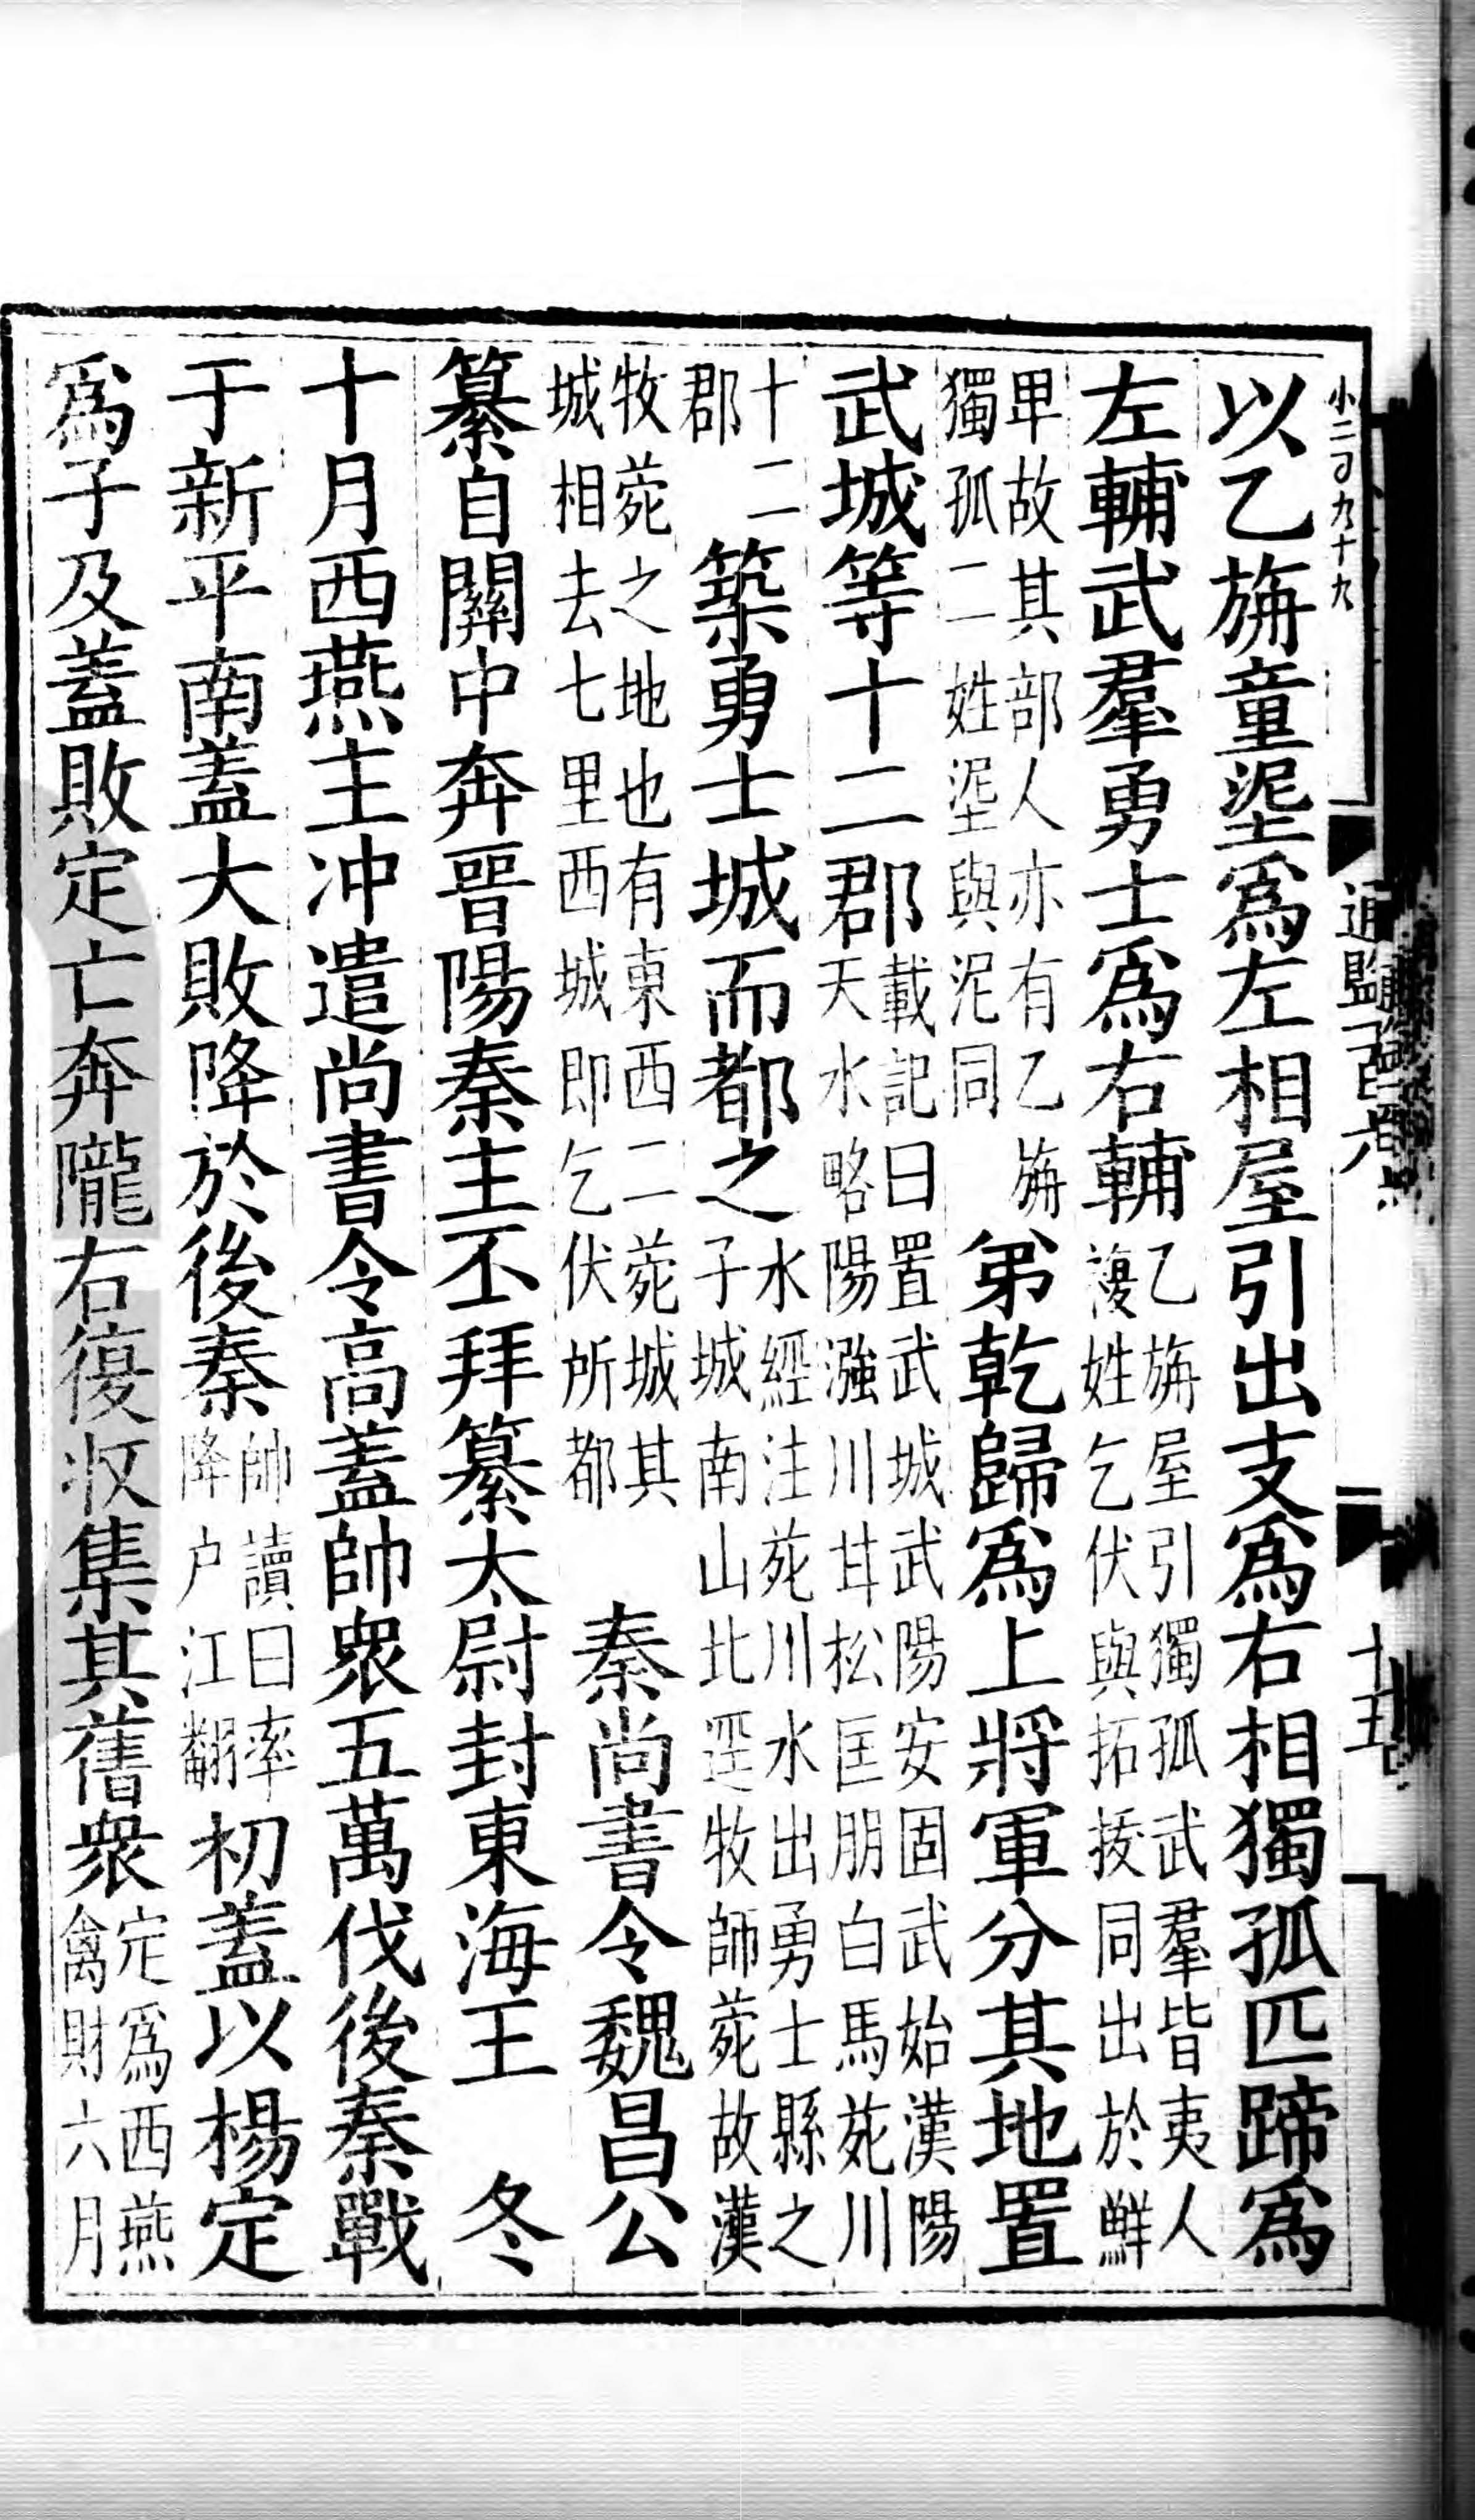 小二 九十九
通監 百六
十五
以乙旃童埿爲左相屋引出支爲右相獨孤匹蹄爲
左輔武羣勇士爲右輔乙旃屋引獨孤武羣皆夷人複姓乞伏與拓拔同出於鮮
甲故其部人亦有乙旃獨孤二姓埿與泥同弟乾歸爲上將軍分其地置
武城等十二郡載記曰置武城武陽安固武始漢陽天水略陽漒川甘松匡朋白馬苑川
十二郡築勇士城而都之水經注苑川水出勇士縣之子城南山北逕牧師菀故漢
牧菀之地也有東西二菀城其城相去七里西城即乞伏所都秦尚書令魏昌公
纂自關中奔晉陽秦主丕拜纂太尉封東海王冬
十月西燕主冲遣尚書令高蓋帥衆五萬伐後秦戰
于新平南蓋大敗降於後秦帥讀曰率降户江翻初蓋以楊定
爲子及蓋敗定亡奔隴右復收集其舊衆定爲西燕禽財六月